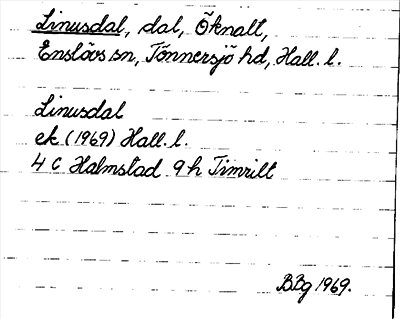 Linusdal, dal, Öknatt,
Enslövs sn, Tönnersjö hd, Hall. l.
Linusdal
ek (1969) Hall. l.
4 C Halmstad 9 h Timrilt
BBg 1969.